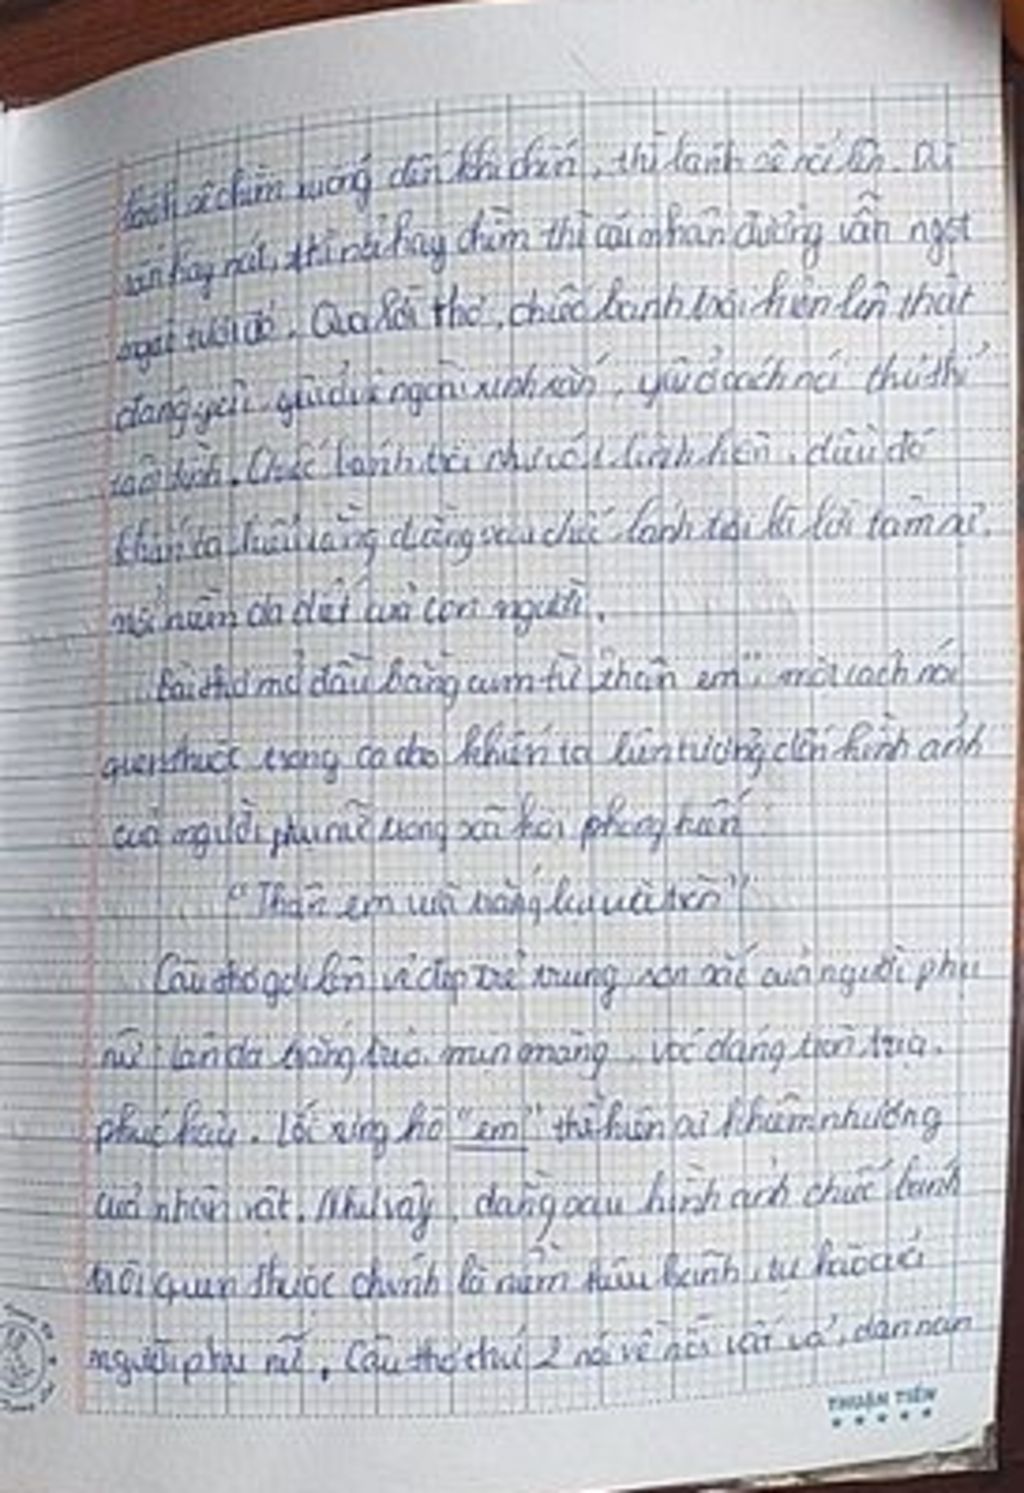 bánh sẽ chìm xuống đến khi chín, thì bánh sẽ nổi lên. Dù
rắn hay nát, thì nổi hay chìm thì cái nhân đường vẫn ngọt
ngọt tươi đỏ. Qua lời thơ, chiếc bánh trôi hiện lên thật
đáng yêu, yêu ở vẻ ngoài xinh xắn, yêu ở cách nói thủ thỉ
tâm tình. Chiếc bánh trôi như có linh hồn, điều đó
khiến ta hiểu rằng đằng sau chiếc bánh trôi là lời tâm sự,
nỗi niềm da diết của con người.
Bài thơ mở đầu bằng cụm từ "thân em", một cách nói
quen thuộc trong ca dao khiến ta liên tưởng đến hình ảnh
của người phụ nữ trong xã hội phong kiến:
"Thân em vừa trắng lại vừa tròn"
Câu thơ gợi lên vẻ đẹp trẻ trung son sắc của người phụ
nữ: làn da trắng trẻo, mịn màng, vóc dáng tròn trịa,
phúc hậu. Lối xưng hô "em" thể hiện sự khiêm nhường
của nhân vật. Như vậy, đằng sau hình ảnh chiếc bánh
trôi quen thuộc chính là niềm kiêu hãnh, tự hào của
người phụ nữ. Câu thơ thứ 2 nói về nỗi vất vả, gian nan
THUẬN TIẾN